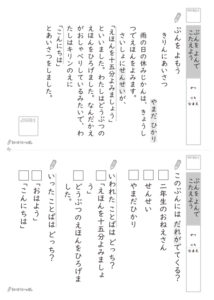 ぶんを よんで
こたえよう
がつ
にち
なまえ
ぶんを よもう
きりんにあいさつ
やまだ ひかり
雨の日の休みじかんは、きょうしつでえほんをよみます。
さいしょにせんせいが、
「えほんを十五分よみましょう」
といいました。わたしはどうぶつの
えほんをひろげました。なんだかえ
がおしゃべりしているみたいで、わ
たしはキリンのえに
「こんにちは」
とあいさつをしました。
ぶんを よんで
こたえよう
がつ
にち
なまえ
このぶんには だれがでてくる？
二年生のおねえさん
せんせい
やまだひかり
いわれた ことばは どっち？
「えほんを十五分よみましょ
う」
どうぶつのえほんをひろげま
した。
いった ことばは どっち？
「おはよう」
「こんにちは」